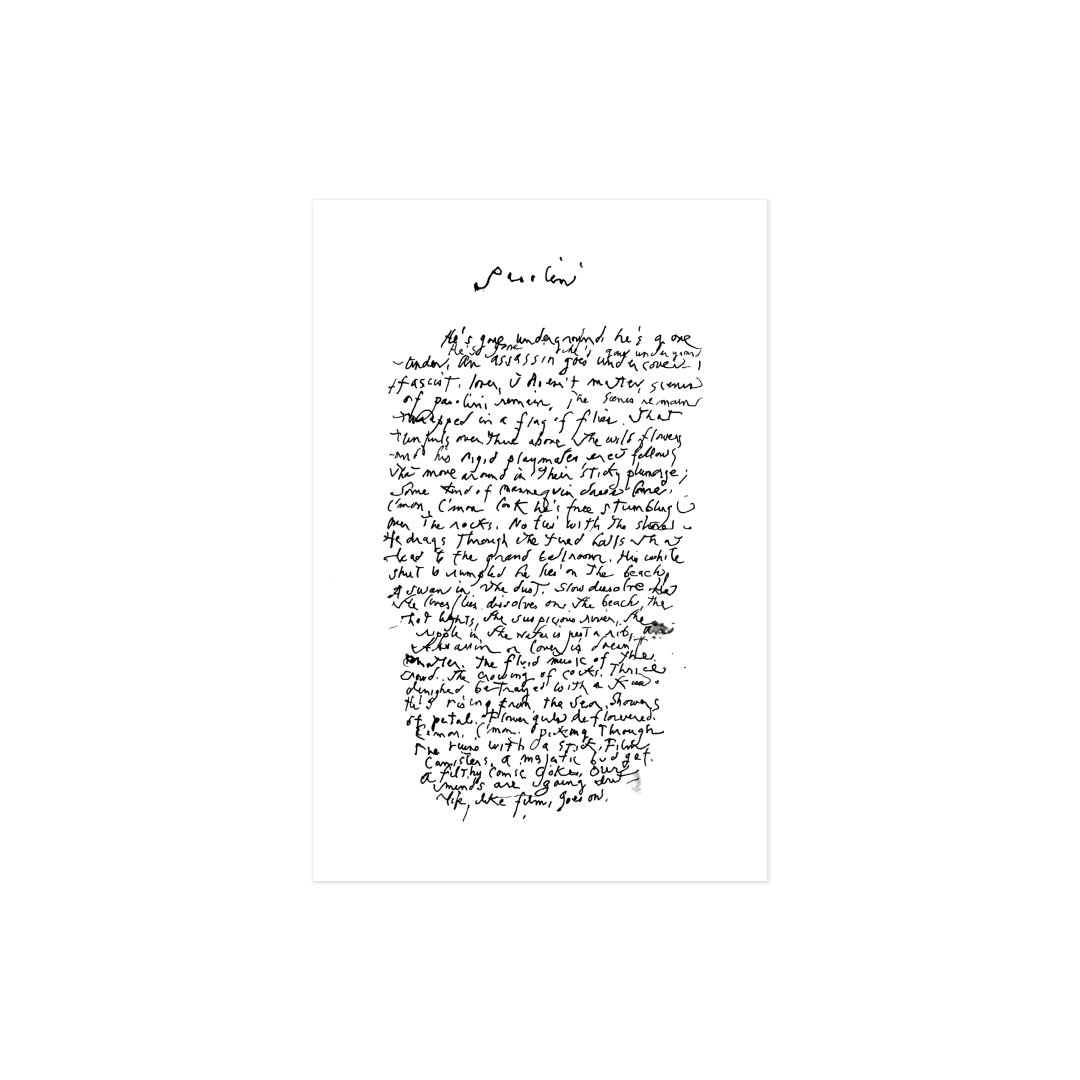 pasolini
He's gone underground, he's gone
He's gone he's gone underground
under, an assassin goes undercover,
fascist, lover, it doesn't matter, scenes
of pasolini remain, The scenes remain
wrapped in a flag of flies. That
over there above the wild flowers
and his rigid playmates erect fellows
that move around in their sticky plumage;
some kind of mannequin dance
C'mon, C'mon look he's free stumbling
over the rocks. No tie with the
He drags Through the tiled halls that
lead to the grand ballroom. His white
shirt is rumpled he lies on The beach,
A swan in the dust. Slow dissolve
he loves/lies dissolves on the beach, the
hot lights, the suspicious river, the
ripple in the water is just a rib,
Assassin or lover is dream
matter. The fluid music of the
crowd. The crowing of cocks. Thrice
denied betrayed with a kiss.
He's rising from the sea, showers
of petals. Flower girls deflowered.
C'mon, C'mon. picking Through
The ruins with a stick, Film
Canisters, a majestic budget.
a filthy comic joke, Our
minds are going but
life, like film, goes on.